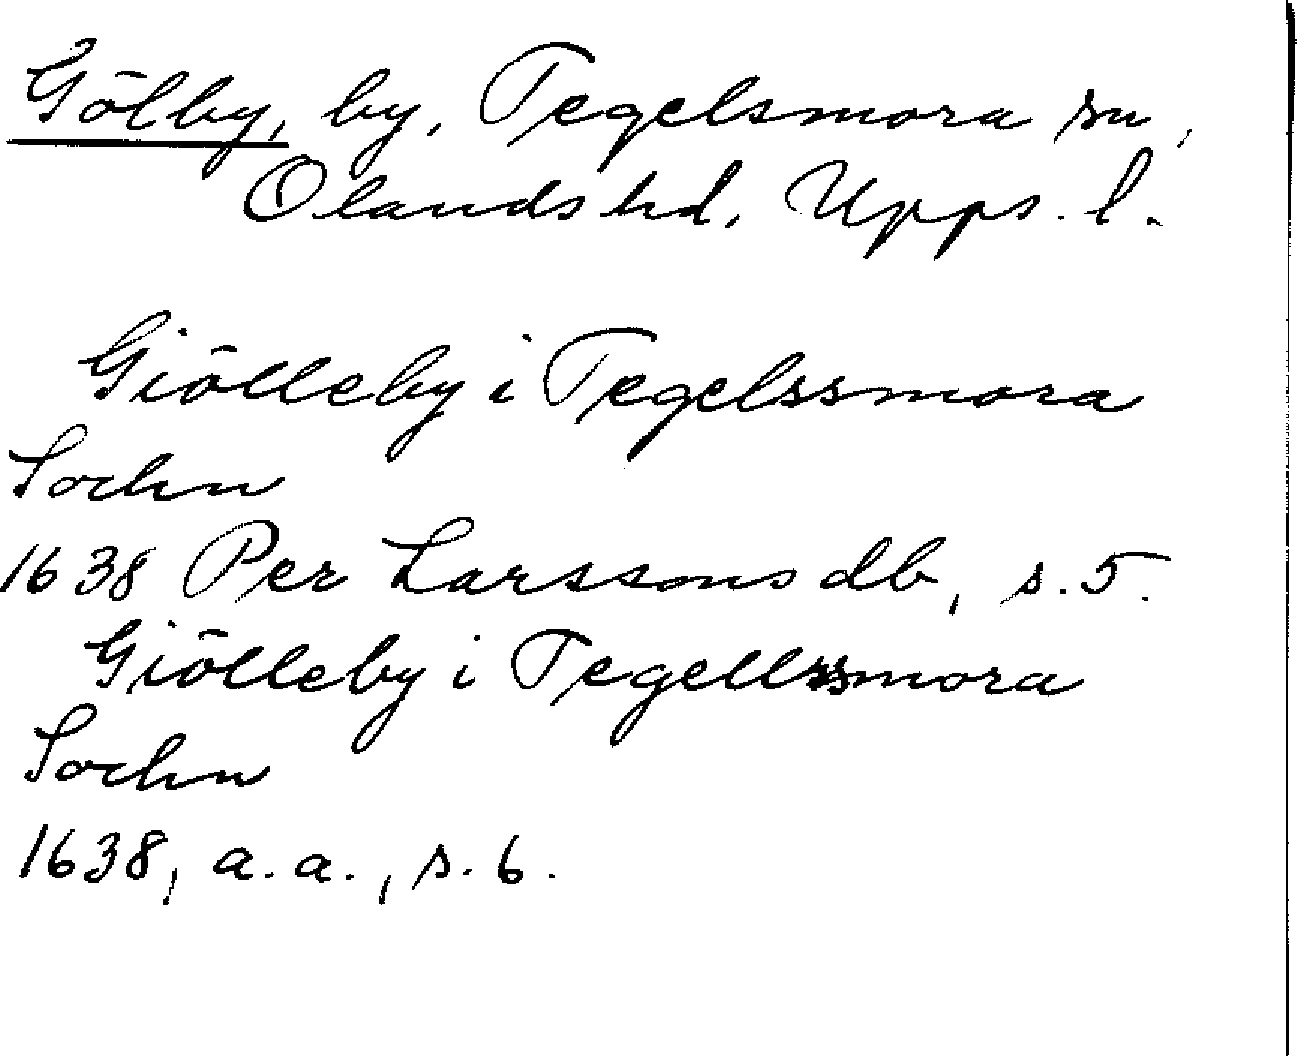 Gölby, by, Tegelsmora sn,
Olands hd, Upps. l.
Giölleby i Tegelssmora
Sochn
1638 Per Larssons db, s. 5.
Giölleby i Tegellssmora
Sochn
1638, a. a., s. 6.